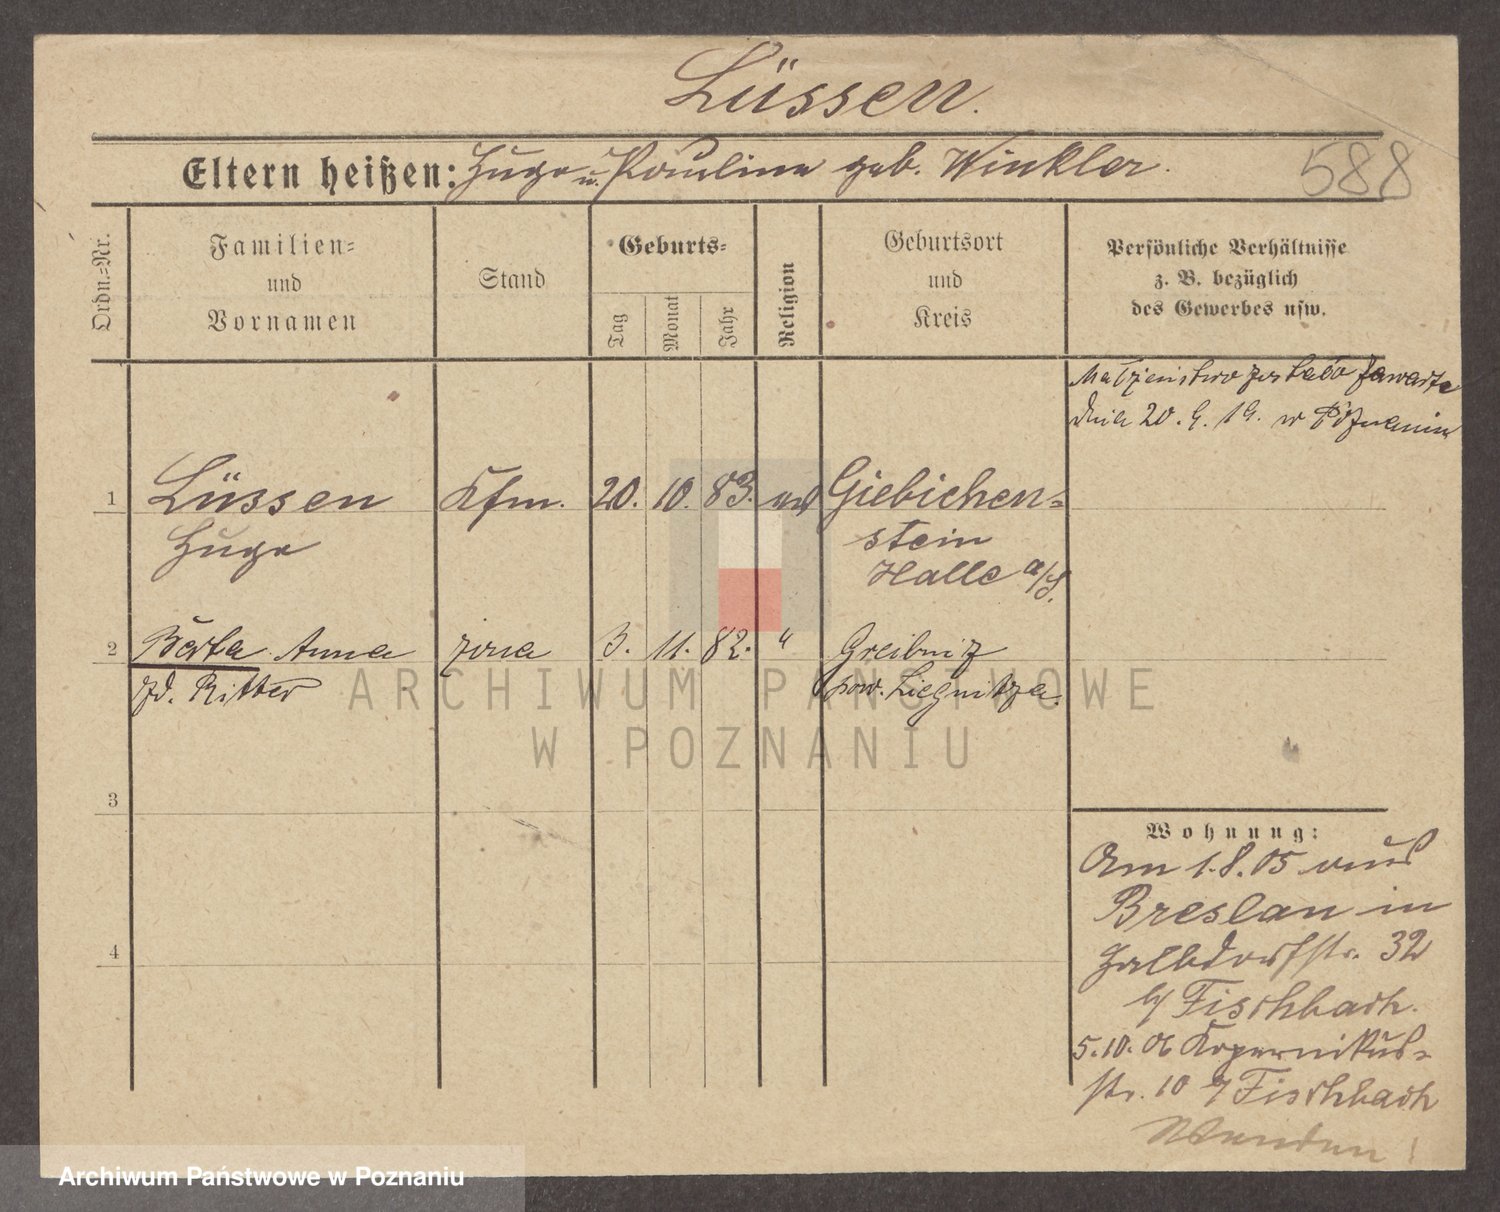 Lüssen.
Eltern heißen: Hugo u. Pauline geb. Winkler.
588
Ordn.-Nr.
Familien-
und
Vornamen
Stand
Geburts-
Tag
Monat
Jahr
Religion
Geburtsort
und
Kreis
Persönliche Verhältnisse
z. B. bezüglich
des Gewerbes usw.
Małżeństwo zostało zawarte
dnia 20. 9. 19. w Poznaniu
1 Lüssen Kfm. 20. 10. 83. Giebichen-
Hugo stein
Halle a/S.
2 Berta Anna żona 3. 11. 82. " Greibnig
zd. Ritter pow. Liegnitza.
3
4
Wohnung:
Am 1.8.05 aus
Breslau in
Halbdorfstr. 32
b/ Fischbach.
5.10.06 Kopernikus-
str. 10 b/ Fischbach
Wenden!
ARCHIWUM PAŃSTWOWE
W POZNANIU
Archiwum Państwowe w Poznaniu